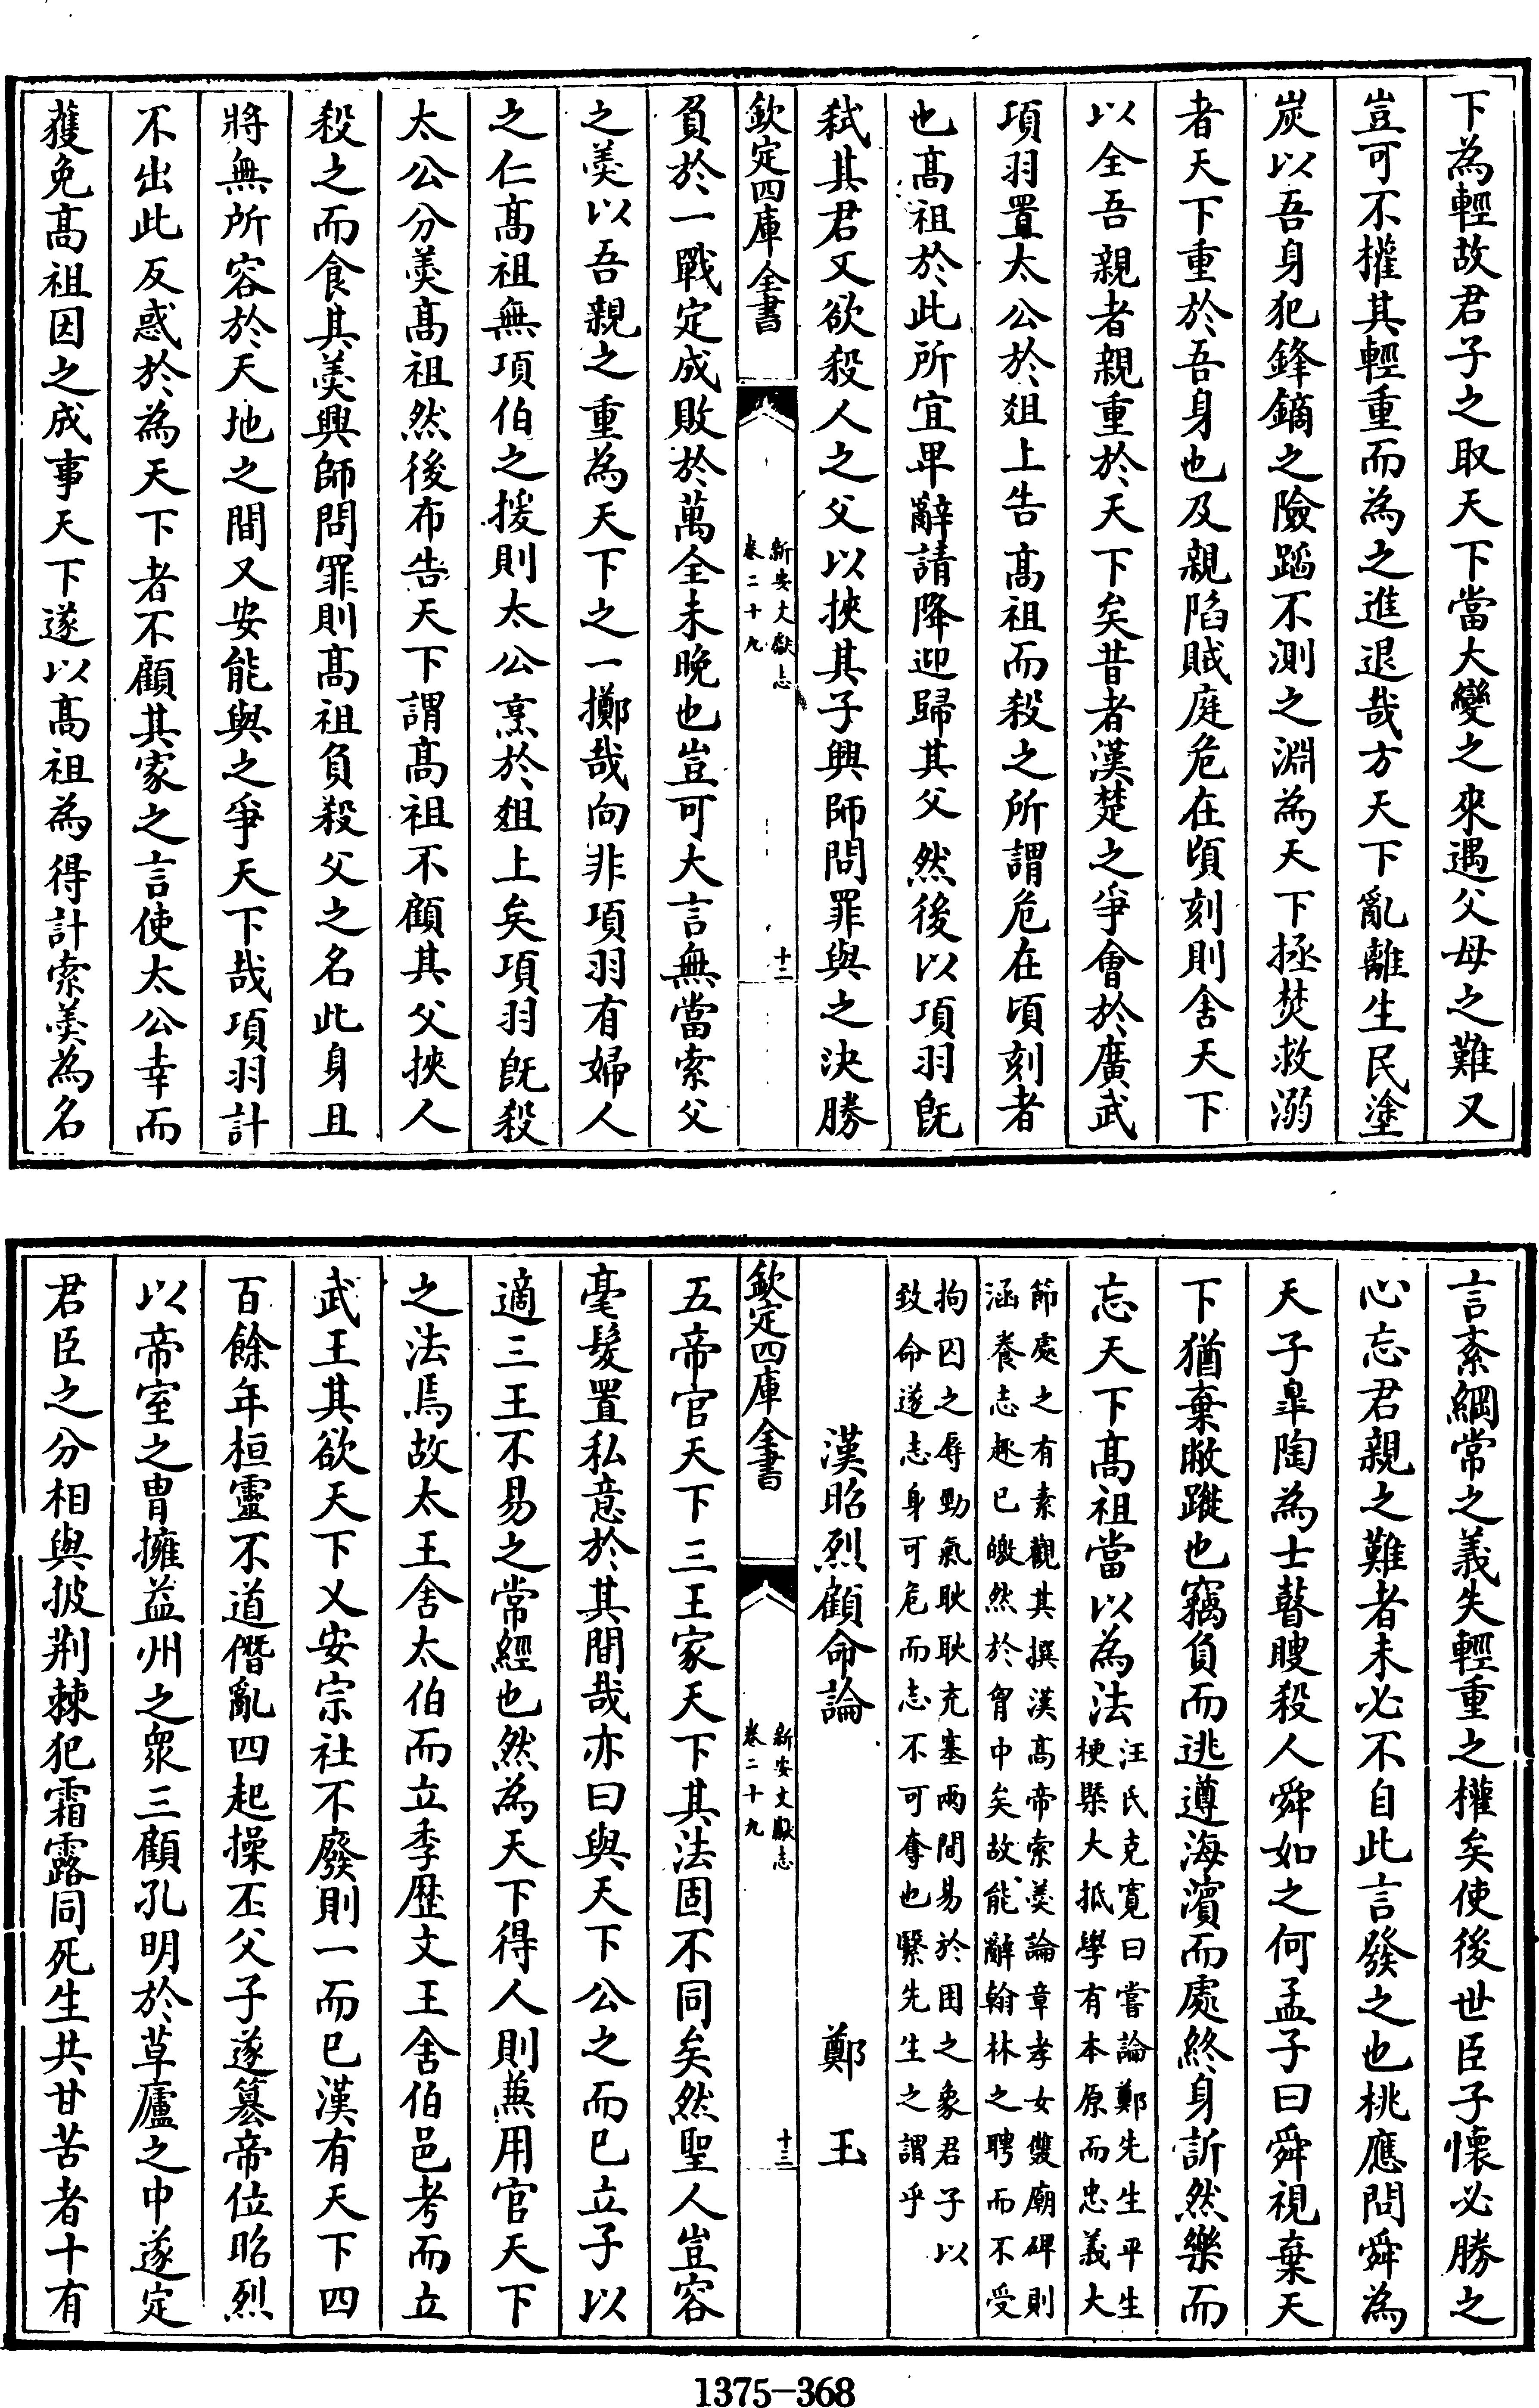 下為輕故君子之取天下當大變之來遇父母之難又
豈可不權其輕重而為之進退哉方天下亂離生民塗
炭以吾身犯鋒鏑之險蹈不測之淵為天下拯焚救溺
者天下重於吾身也及親陷賊庭危在頃刻則舍天下
以全吾親者親重於天下矣昔者漢楚之爭會於廣武
項羽置太公於俎上告高祖而殺之所謂危在頃刻者
也高祖於此所宜卑辭請降迎歸其父然後以項羽旣
弑其君又欲殺人之父以挾其子興師問罪與之決勝
欽定四庫全書
新安文獻志
卷二十九
十二
負於一戰定成敗於萬全未晚也豈可大言無當索父
之羮以吾親之重為天下之一擲哉向非項羽有婦人
之仁高祖無項伯之援則太公烹於俎上矣項羽旣殺
太公分羮高祖然後布告天下謂高祖不顧其父挾人
殺之而食其羮興師問罪則高祖負殺父之名此身且
將無所容於天地之間又安能與之爭天下哉項羽計
不出此反惑於為天下者不顧其家之言使太公幸而
獲免高祖因之成事天下遂以高祖為得計索羮為名
言紊綱常之義失輕重之權矣使後世臣子懷必勝之
心忘君親之難者未必不自此言發之也桃應問舜為
天子臯陶為士瞽瞍殺人舜如之何孟子曰舜視棄天
下猶棄敝蹝也竊負而逃遵海濱而處終身訢然樂而
忘天下高祖當以為法汪氏克寛曰嘗論鄭先生平生
梗槩大抵學有本原而忠義大
節處之有素觀其撰漢高帝索羮論章孝女雙廟碑則
涵養志趣已皦然於胷中矣故能辭翰林之聘而不受
拘囚之辱勁氣耿耿充塞兩間易於困之象君子以
致命遂志身可危而志不可奪也緊先生之謂乎
漢昭烈顧命論　鄭玉
欽定四庫全書
新安文獻志
卷二十九
十三
五帝官天下三王家天下其法固不同矣然聖人豈容
毫髮置私意於其間哉亦曰與天下公之而已立子以
適三王不易之常經也然為天下得人則兼用官天下
之法焉故太王舍太伯而立季歴文王舍伯邑考而立
武王其欲天下乂安宗社不廢則一而已漢有天下四
百餘年桓靈不道僭亂四起操丕父子遂簒帝位昭烈
以帝室之胄擁益州之衆三顧孔明於草廬之中遂定
君臣之分相與披荆棘犯霜露同死生共甘苦者十有
1375-368